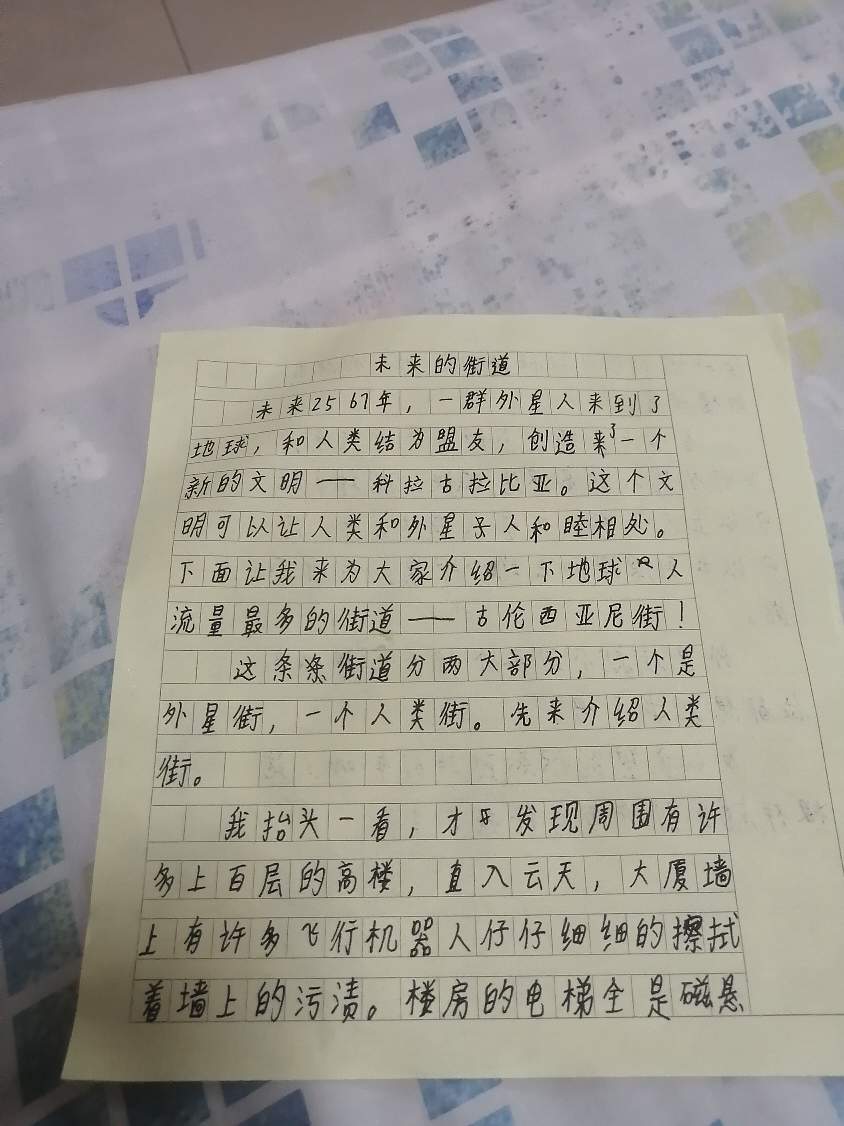 未来的街道
未来2567年，一群外星人来到了
地球，和人类结为盟友，创造来了一个
新的文明——科拉古拉比亚。这个文
明可以让人类和外星子人和睦相处。
下面让我来为大家介绍一下地球人
流量最多的街道——古伦西亚尼街！
这条条街道分两大部分，一个是
外星街，一个人类街。先来介绍人类
街。
我抬头一看，才发现周围有许
多上百层的高楼，直入云天，大厦墙
上有许多飞行机器人仔仔细细的擦拭
着墙上的污渍。楼房的电梯全是磁悬